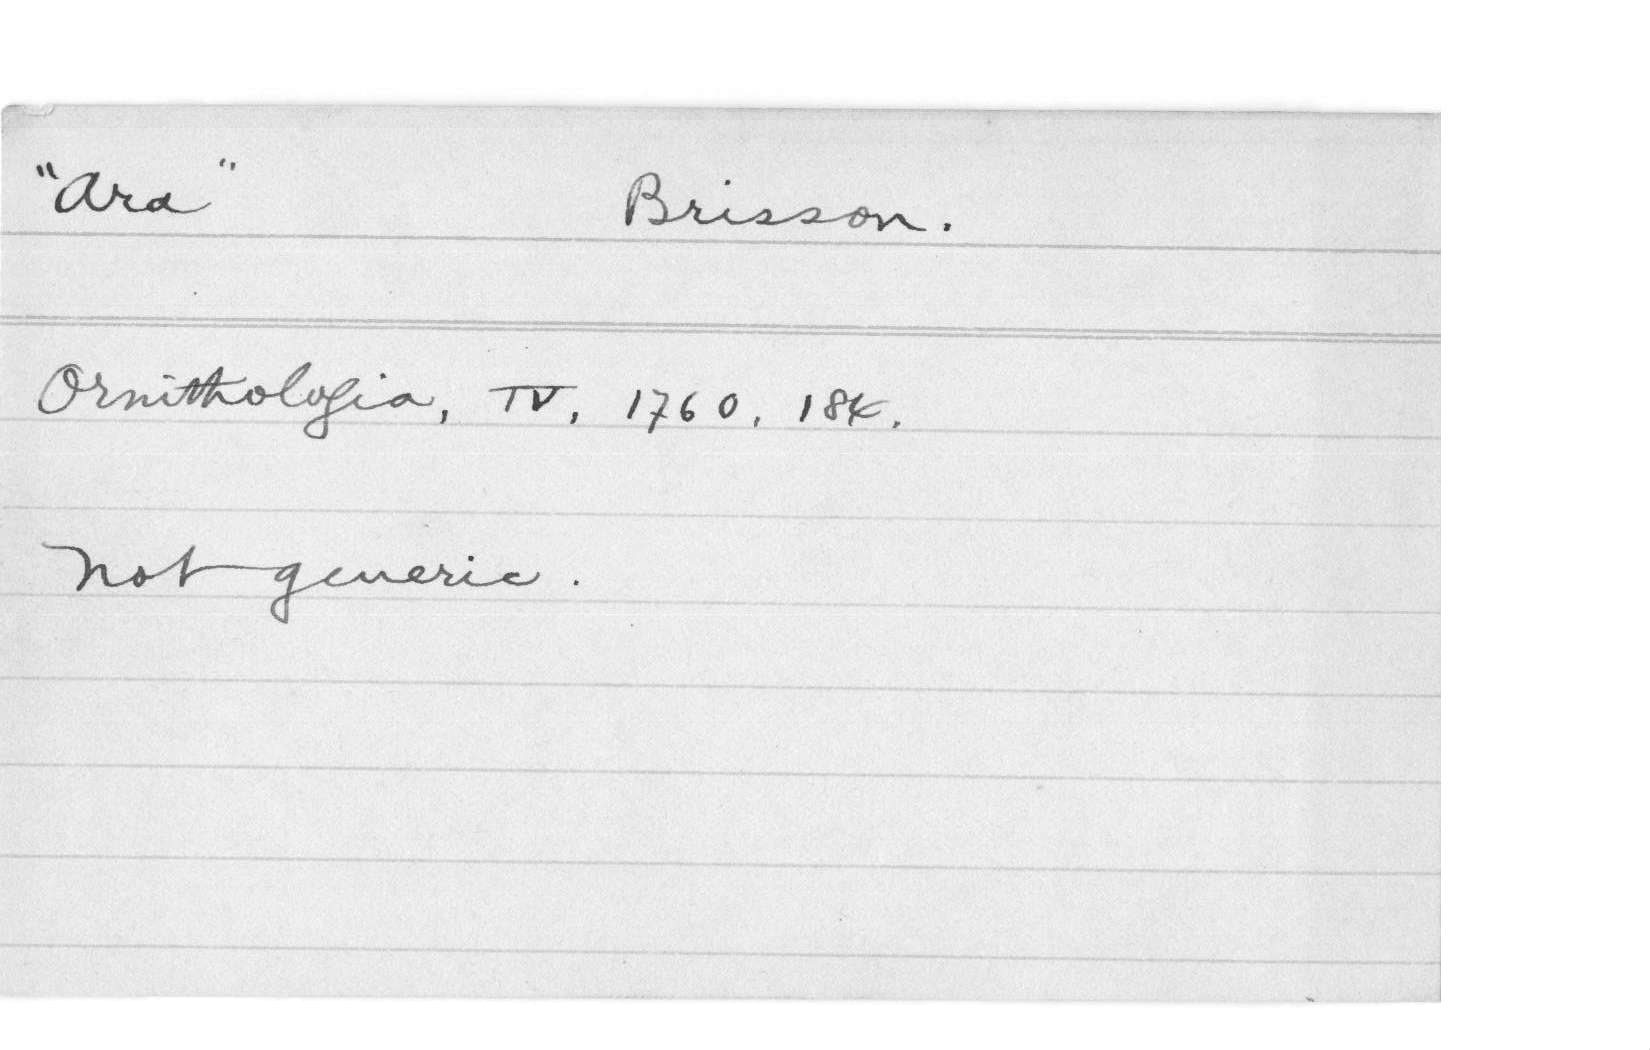 "Ara" Brisson.
Ornithologia, IV, 1760, 184.
Not generic.